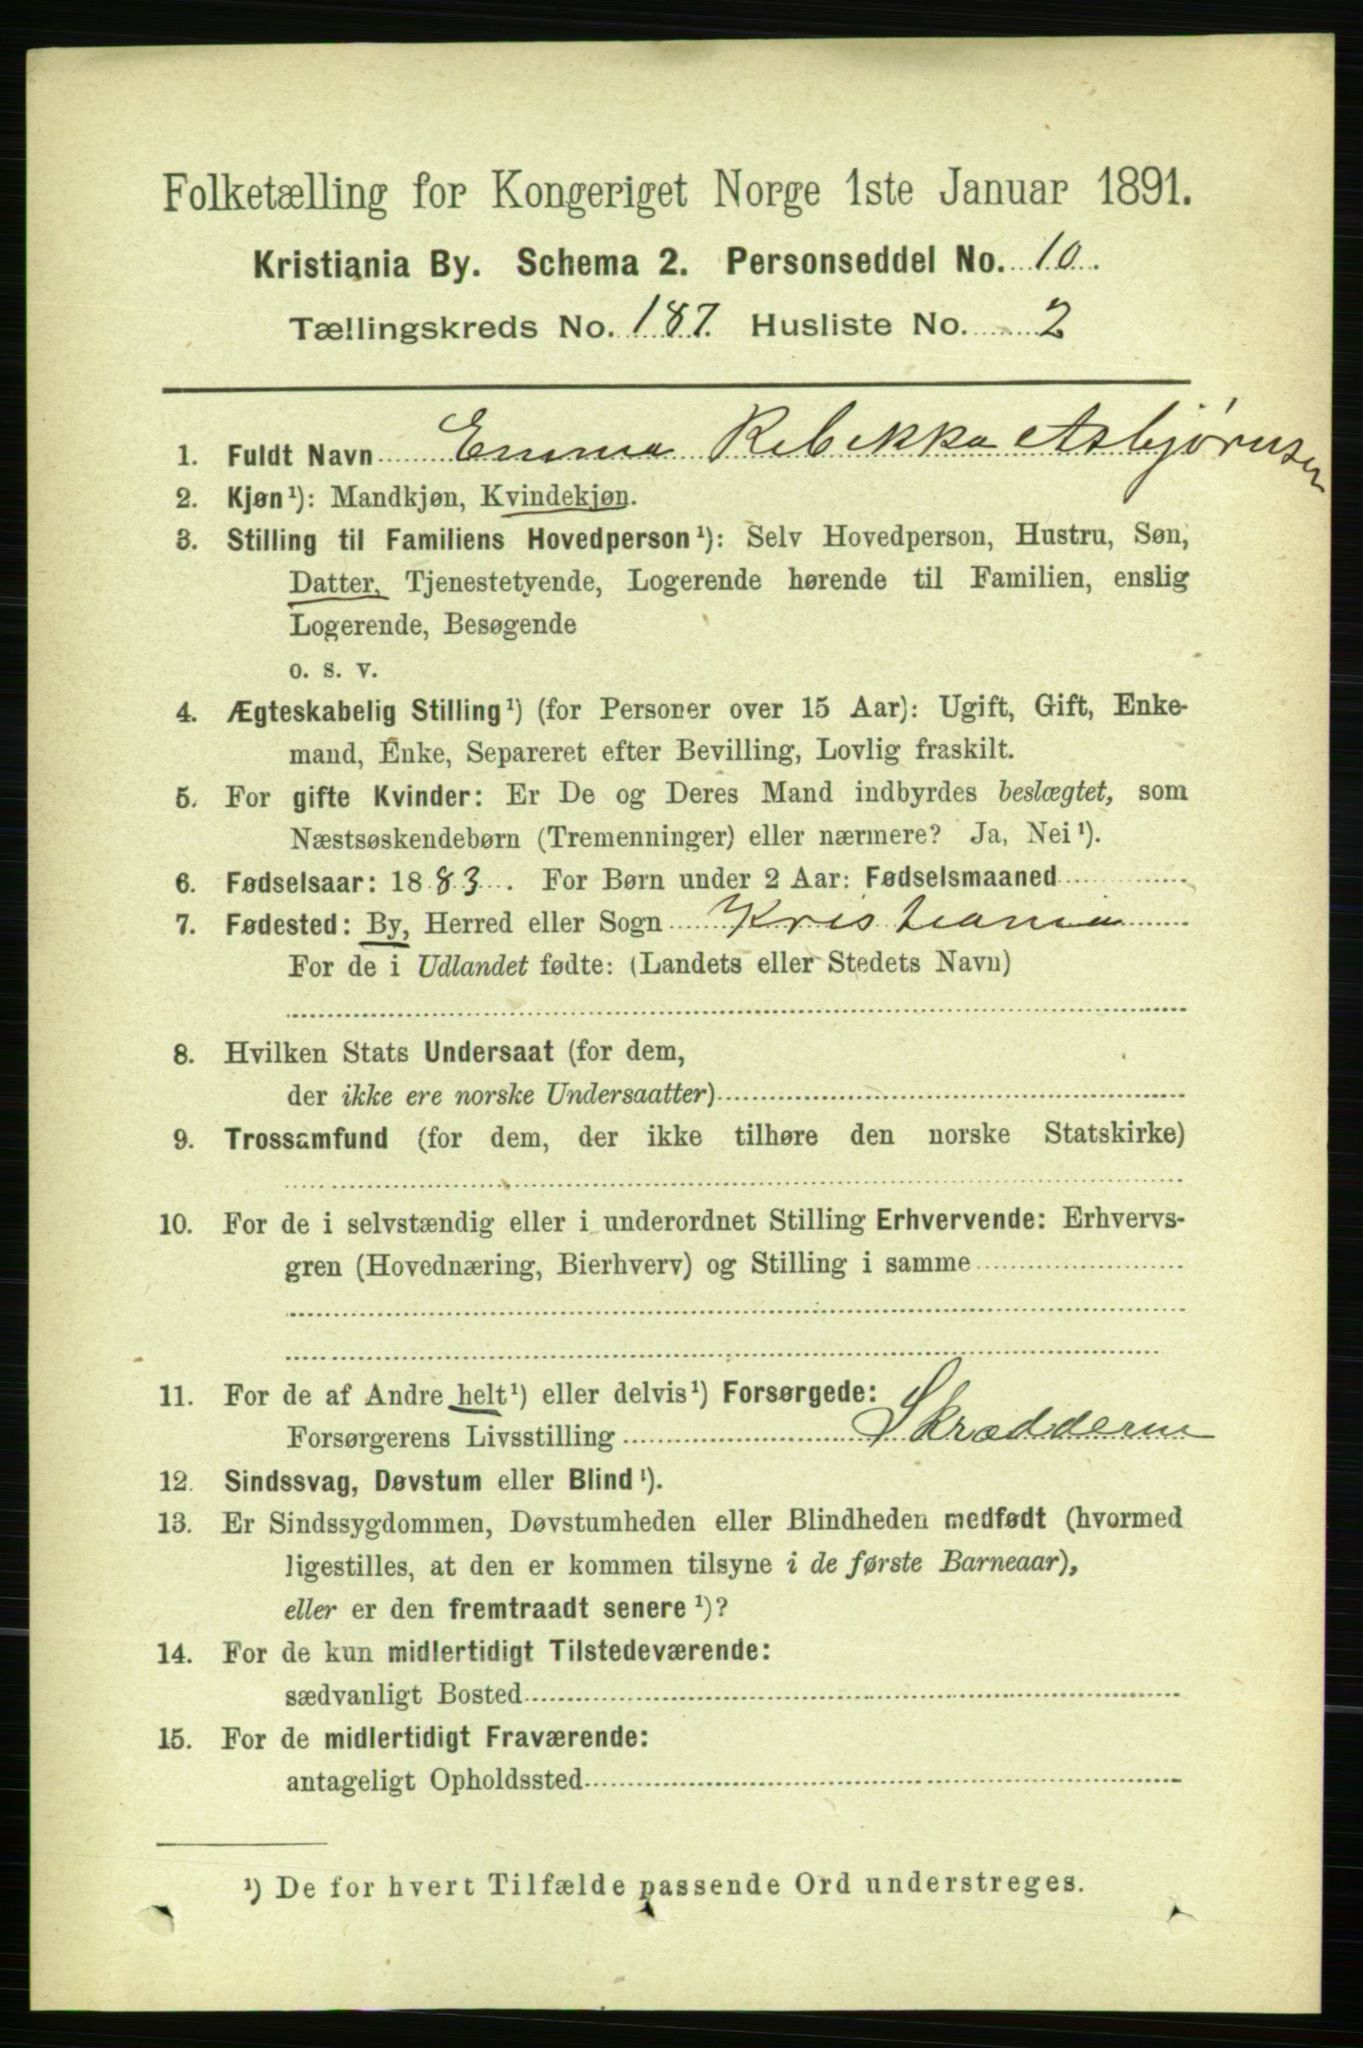 Folketælling for Kongeriget Norge 1ste Januar 1891.
Kristiania By. Schema 2. Personseddel No. 10.
Tællingskreds No. 187. Husliste No. 2
1. Fuldt Navn Emma Rebekka Asbjørnsen
2. Kjøn¹): Mandkjøn, Kvindekjøn.
3. Stilling til Familiens Hovedperson¹): Selv Hovedperson, Hustru, Søn,
Datter, Tjenestetyende, Logerende hørende til Familien, enslig
Logerende, Besøgende
o. s. v.
4. Ægteskabelig Stilling¹) (for Personer over 15 Aar): Ugift, Gift, Enke-
mand, Enke, Separeret efter Bevilling, Lovlig fraskilt.
5. For gifte Kvinder: Er De og Deres Mand indbyrdes beslægtet, som
Næstsøskendebørn (Tremenninger) eller nærmere? Ja, Nei¹).
6. Fødselsaar: 1883. For Børn under 2 Aar: Fødselsmaaned
7. Fødested: By, Herred eller Sogn Kristiania
For de i Udlandet fødte: (Landets eller Stedets Navn)
8. Hvilken Stats Undersaat (for dem,
der ikke ere norske Undersaatter)
9. Trossamfund (for dem, der ikke tilhøre den norske Statskirke)
10. For de i selvstændig eller i underordnet Stilling Erhvervende: Erhvervs-
gren (Hovednæring, Bierhverv) og Stilling i samme
11. For de af Andre helt¹) eller delvis¹) Forsørgede:
Forsørgerens Livsstilling Skrædderm
12. Sindssvag, Døvstum eller Blind¹).
13. Er Sindssygdommen, Døvstumheden eller Blindheden medfødt (hvormed
ligestilles, at den er kommen tilsyne i de første Barneaar),
eller er den fremtraadt senere¹)?
14. For de kun midlertidigt Tilstedeværende:
sædvanligt Bosted
15. For de midlertidigt Fraværende:
antageligt Opholdssted
¹) De for hvert Tilfælde passende Ord understreges.